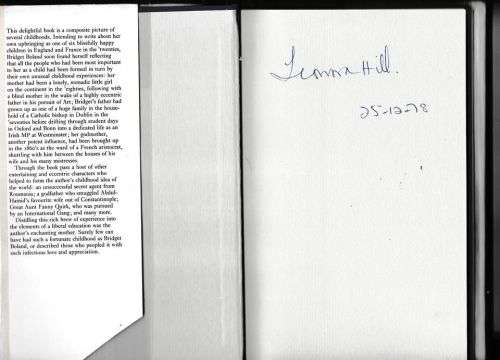 This delightful book is a composite picture of
several childhoods. Intending to write about her
own upbringing as one of six blissfully happy
children in England and France in the 'twenties,
Bridget Boland soon found herself reflecting
that all the people who had been most important
to her as a child had been formed in turn by
their own unusual childhood experiences: her
mother had been a lonely, nomadic little girl
on the continent in the 'eighties, following with
a blind mother in the wake of a highly eccentric
father in his pursuit of Art; Bridget's father had
grown up as one of a huge family in the house-
hold of a Catholic bishop in Dublin in the
'seventies before drifting through student days
in Oxford and Bonn into a dedicated life as an
Irish MP at Westminster; her godmother,
another potent influence, had been brought up
in the 1860's as the ward of a French aristocrat,
shuttling with him between the houses of his
wife and his many mistresses.
Through the book pass a host of other
entertaining and eccentric characters who
helped to form the author's childhood idea of
the world: an unsuccessful secret agent from
Roumania; a godfather who smuggled Abdul-
Hamid's favourite wife out of Constantinople;
Great Aunt Fanny Quirk, who was pursued
by an International Gang; and many more.
Distilling this rich brew of experience into
the elements of a liberal education was the
author's enchanting mother. Surely few can
have had such a fortunate childhood as Bridget
Boland, or described those who peopled it with
such infectious love and appreciation.
Hill.
25-12-78